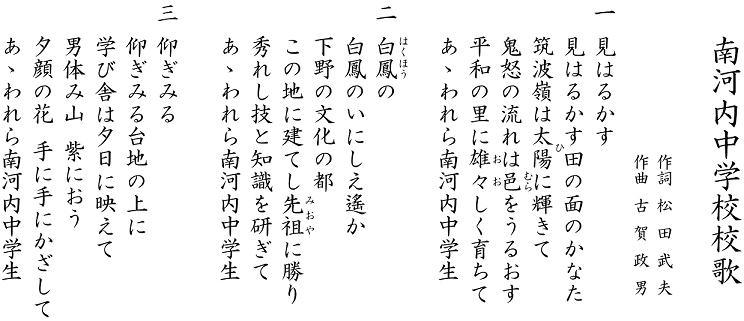 南河内中学校校歌
作詞 松田武夫
作曲 古賀政男
一 見はるかす
見はるかす田の面のかなた
筑波嶺は太陽に輝きて
ひ
鬼怒の流れは邑をうるおす
むら
平和の里に雄々しく育ちて
おお
あゝわれら南河内中学生
二 白鳳の
はくほう
白鳳のいにしえ遙か
下野の文化の都
この地に建てし先祖に勝り
みおや
秀れし技と知識を研ぎて
あゝわれら南河内中学生
三 仰ぎみる
仰ぎみる台地の上に
学び舎は夕日に映えて
男体み山 紫におう
夕顔の花 手に手にかざして
あゝわれら南河内中学生